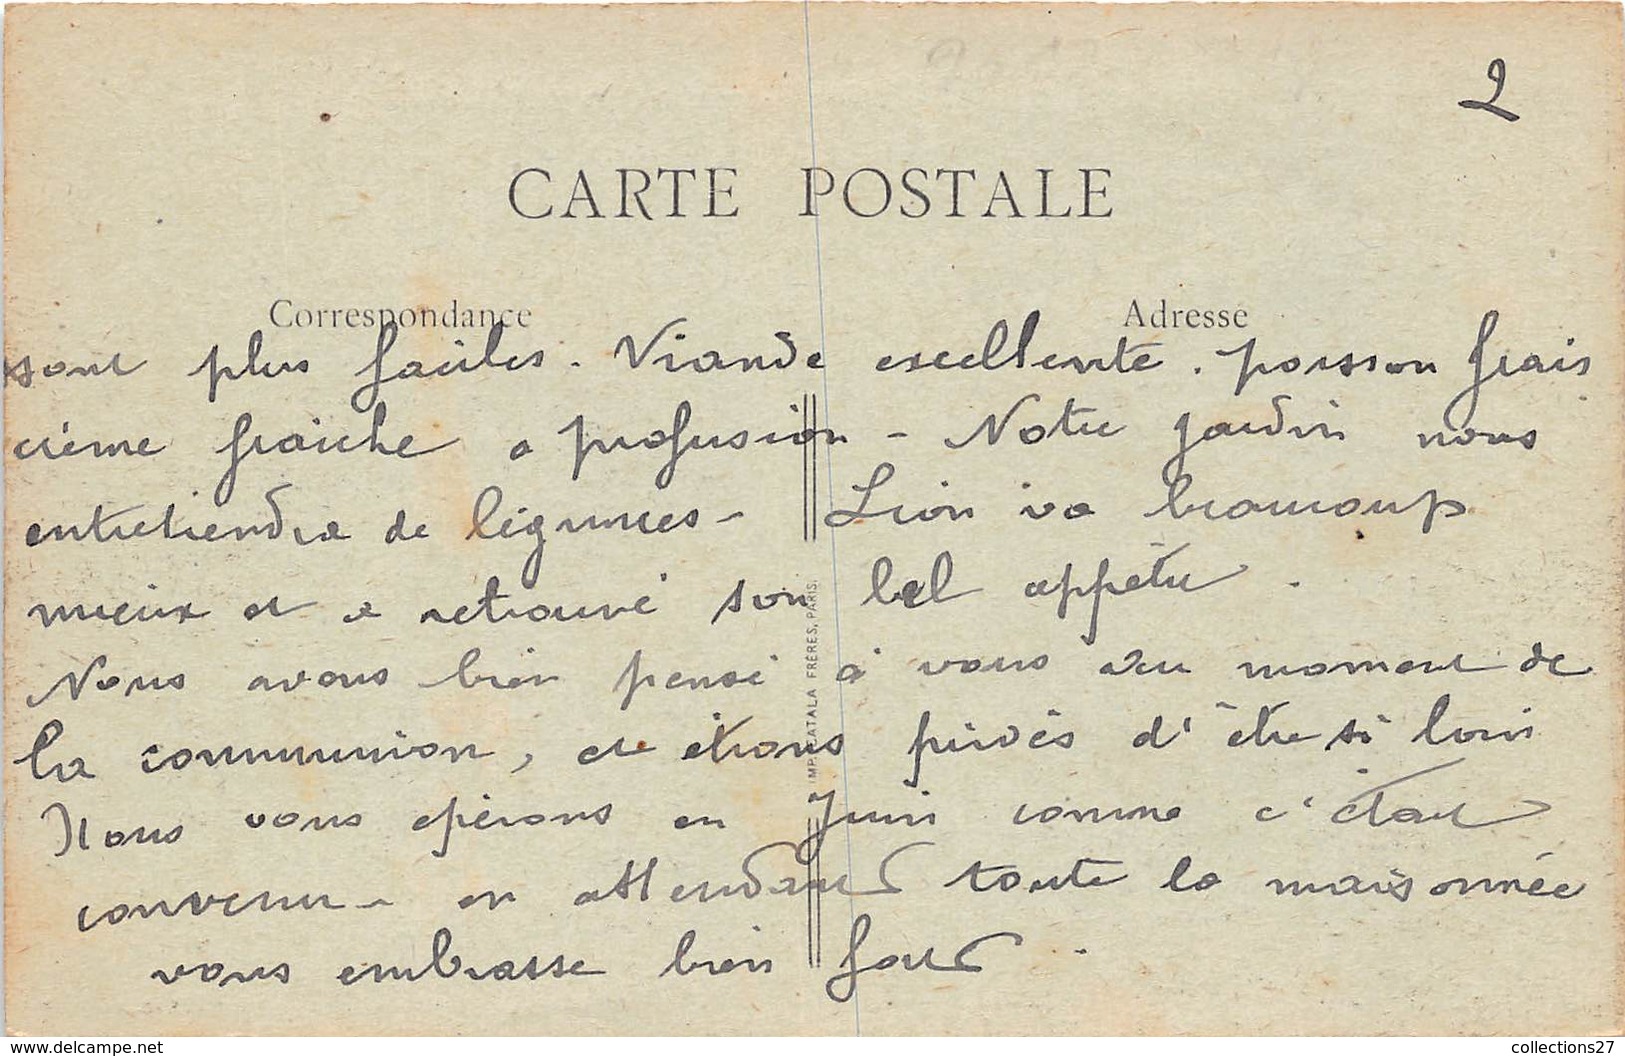 2
CARTE POSTALE
Correspondance
Adresse
sont plus faciles. Viande excellente. poisson frais
crème fraiche a profusion - Notre jardin nous
entretiendra de légumes - Lion va beaucoup
mieux et a retrouvé son bel appétit.
Nous avons bien pensé à vous au moment de
la communion, et étions privés d'être si loin
Nous vous espérons en Juin comme c'était
convenu - en attendant toute la maisonnée
vous embrasse bien fort.
IMP. CATALA FRÈRES, PARIS.
www.delcampe.net
collections27